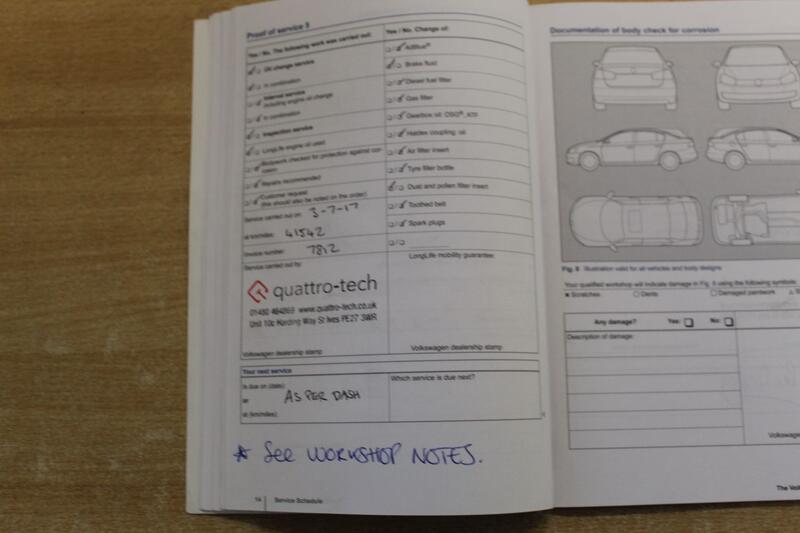 Proof of service 5
Yes / No. The following work was carried out:
Oil change service
In combination
Internal service
including engine oil change
In combination
Inspection service
LongLife engine oil used
Bodywork checked for protection against cor-
rosion
Repairs recommended
Customer request
(this should also be noted on the order)
Service carried out on: 3-7-17
at km/miles: 41542
Invoice number:
Service carried out by:
quattro-tech
01480 464869 www.quattro-tech.co.uk
Unit 10c Harding Way St Ives PE27 3WR
Volkswagen dealership stamp
Yes / No. Change of:
AdBlue®
Brake fluid
Diesel fuel filter
Gas filter
Gearbox oil: DSG®,
Haldex coupling: oil
Air filter insert
Tyre filler bottle
Dust and pollen filter insert
Toothed belt
Spark plugs
LongLife mobility guarantee:
Volkswagen dealership stamp
Your next service
Is due on (date):
or AS PER DASH
at (km/miles):
Which service is due next?
* See WORKSHOP NOTES.
14 Service Schedule
Documentation of body check for corrosion
Fig. 8 Illustration valid for all vehicles and body designs
Your qualified workshop will indicate damage in Fig. 8 using the following symbols
Scratches Dents Damaged paintwork
Any damage? Yes: No:
Description of damage:
Volkswage
The Vol